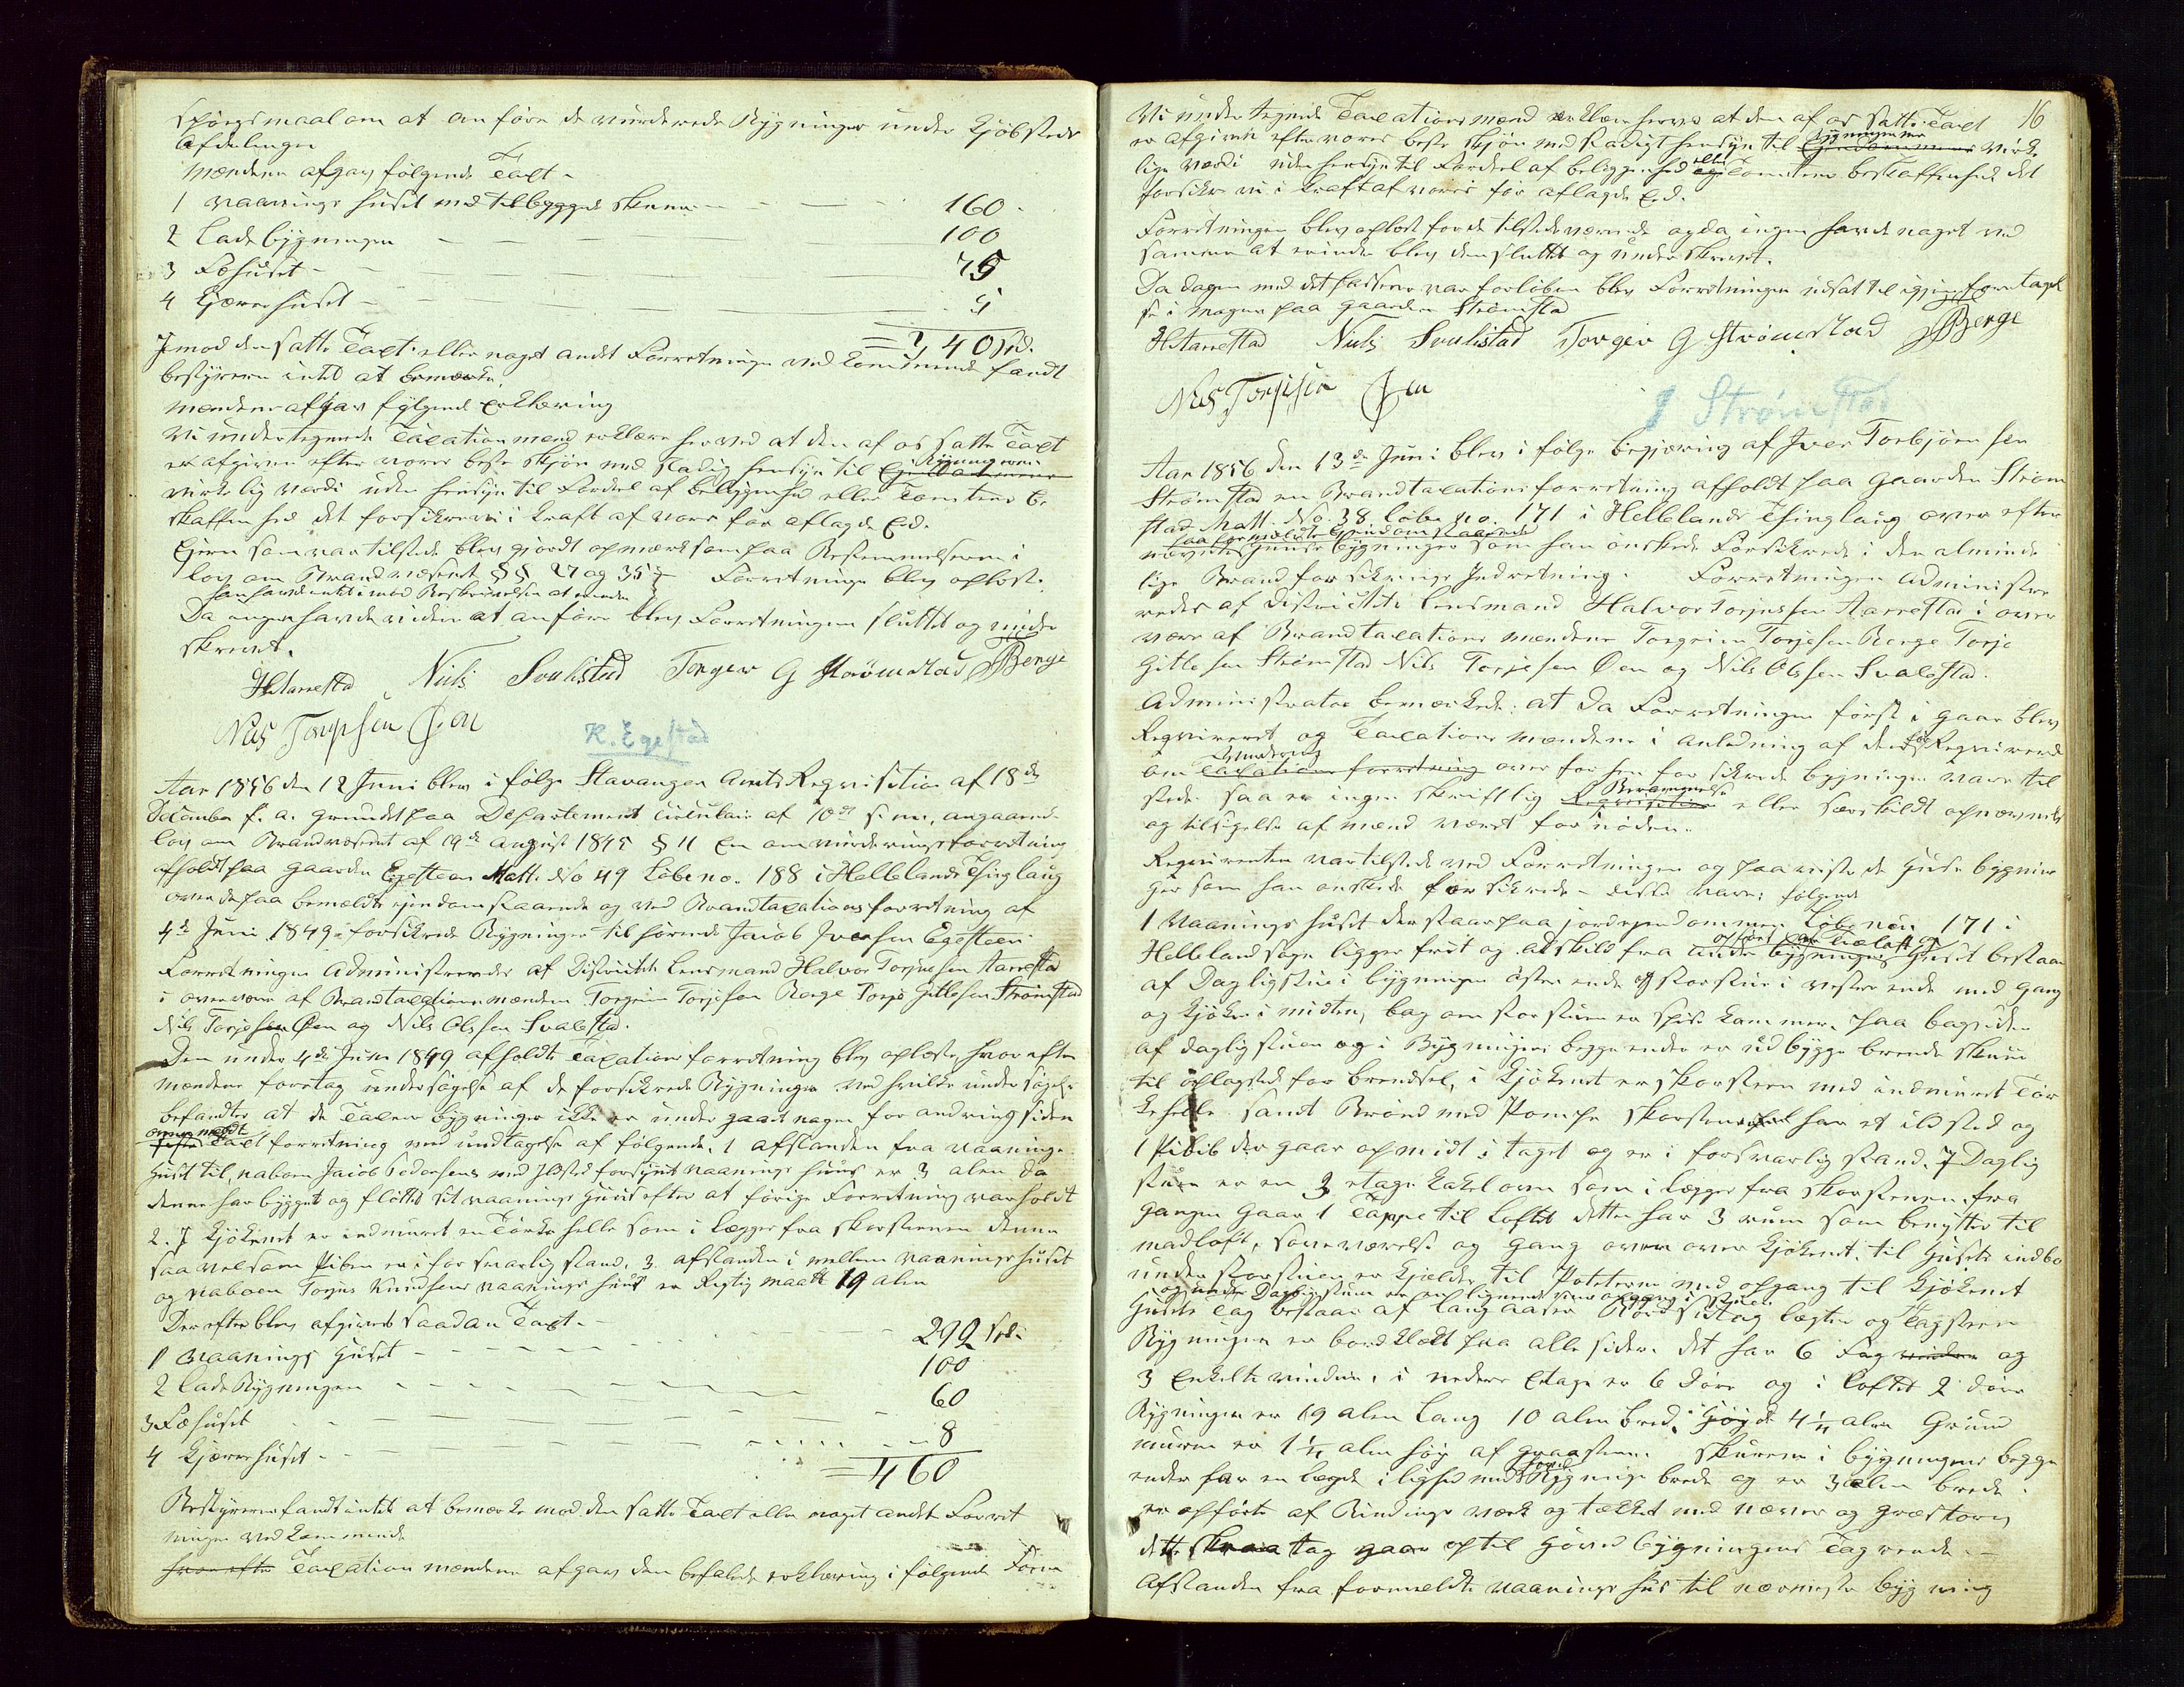 Spørgsmaal om at anføre de vurderede Bygninger under Kjøbsteds
Afdelingen
Mændene afgav følgende Taxt -
1 Vaanings huset med tilbygget Skuur - - - 160 -
2 Ladebygningen - - - 100
3 Føhuset - - - 75
4 Kjærnehuset - - - 5
= 340 Spd.
Imod den satte Taxt eller noget andet Forretningen ved kommende fandt
bestyreren intet at bemærke.
Mændene afgav følgende Erklæring
Vi undertegnede Taxationsmænd erklære herved at den af os satte Taxt
er afgiven efter vores beste Skjøn med stadig hensyn til Ejendommene Bygningernes
virkelig værdi uden hensyn til Fordeel af beliggenhed eller Tomtens be
skaffenhed det forsikres vi i Kraft af vores før aflagde Eed.
Ejeren som var tilstede blev gjordt opmærksom paa Bestemmelserne i
lov om Brandvæsenet §§ 27 og 35 Forretningen blev oplæst.
han havde intet imod Beskrivelsen at erindre
Da ingen havde videre at anføre blev Forretningen sluttet og under
skrevet.
HAarrestad Niels Svalestad Torger G Strømstad TTBerge
Nils Torjesen Øen
K. Egestad
Aar 1856 den 12 Juni blev i følge Stavanger Amts Reqvisition af 18de
December f. a. grundet paa Departements Circulair af 10de s. m. angaaende
lov om Brandvæsenet af 19de August 1845 § 11 En omvurderingsforretning
afholdt paa Gaarden Egesteen Matt. No 49 Løbe no. 188 i Hellelands Thinglaug
over de paa bemeldte ejendom staaende og ved Brandtaxationsforretning af
4de Juni 1849 forsikrede Bygninger tilhørende Jacob Iversen Egesteen
Forretningen Administreredes af Districtets Lensmand Halvor Torjussen Aarrestad
i overvær af Brandtaxationsmændene Torgrim Torjesen Berge Torje Gitlesen Strømstad
Nils Torjesen Øen og Nils Olsen Svalestad.
Den under 4de Juni 1849 afholdte Taxationsforretning blev oplæst, hvorefter
Mændene foretog undersøgelse af de forsikrede Bygninger ved hvilken undersøgelse
befandtes at de Taxerede bygninger ikke er under gaaet nogen forandring siden
ovenmeldte Taxtforretning med undtagelse af følgende. 1 Afstanden fra Vaanings
huset til naboen Jacob Pedersens med Ildsted forsynt Vaanings huus er 3 alen da
denne har bygget og flyttet sit vaanings huus efter at forrige Forretning var holdt
2. I Kjøkenet er indmuret en Tørke helle som i lægger fra skorstenen denne
saavelsom Piben er i forsvarlig stand. 3. afstanden i mellem Vaaningshuset
og naboen Torjus Knudsens vaanings huus er Rigtig maalt 19 alen
Derefter blev afgivet saadan Taxt. -
1 Vaanings Huset - - - 292 Spd.
2 Lade Bygningen - - - 100
3 Føhuset - - - 60
4 Kjærnehuset - - - 8
= 460
Bestyreren fandt intet at bemærke mod den satte Taxt eller noget andet Forret
ningen ved kommende
hvorefter Taxationsmændene afgav den befalede erklæring i følgende Form
16
Vi undertegnede Taxationsmænd erklære herved at den af os satte Taxt
er afgiven efter vores beste skjøn med stadigt hensyn til Ejendommenes Bygningernes virke
lige værdi uden hensyn til Fordeel af beliggenhed eller Tomtens beskaffenhed det
forsikre vi i Kraft af vores før aflagde Eed.
Forretningen blev oplæst for de tilstedeværende og da ingen havde noget ved
samme at erindre blev den sluttet og underskrevet.
Da dagen med det passerede var forløben blev Forretningen udsat til igjen foretagel
se i morgen paa gaarden Strømstad
HAarrestad Niels Svalestad Torger G Strømstad TTBerge
Nils Torjesen Øen
J Strømstad
Aar 1856 den 13de Juni blev i følge begjæring af Iver Torbjørnsen
Strømstad en Brandtaxationsforretning afholdt paa Gaarden Strøm
stad Matt. No. 38 løbe no. 171 i Hellelands Thinglaug over efter
nævnte paa formeldte Ejendom staaende bygninger som han ønskede Forsikrede i den alminde
lige Brandforsikrings Indretning. Forretningen Administre
redes af Districtets Lensmand Halvor Torjussen Aarrestad i over
være af Brandtaxations mændene Torgrim Torjesen Berge Torje
Gitlesen Strømstad Nils Torjesen Øen og Nils Olsen Svalestad.
Administrator bemærkede: at da Forretningen først i gaar blev
Reqvireret og Taxationsmændene i anledning af den Reqvirerede
om Taxations forretning Vurdering over før hen forsikrede bygninger vare til
stede saa er ingen skriftlig Reqvisition Berammelse eller særskildt opnævnelse
og tilsigelse af mænd været for nøden.
Reqvirenten var tilstede ved Forretningen og paaviste de Huse bygnin
ger som han ønskede forsikrede - disse vare følgende
1 Vaanings huset der staar paa jordejendommen Løbe no 171 i
Helleland sogn ligger frit og adskild fra andre bygninger Huset bestaar
af Dagligstue i bygningens østre ende og storstue i vestre ende med gang
og kjøken i midten, bag om storstuen er spise kammer. paa bagsiden
af dagligstuen og i Bygningens begge ender er udbygge brende skuur
til oplagsted for brendsel, i kjøkenet er skorsteen med indmuret Tør
kehelle samt Brønd med Pompe skorstenen har et ildsted og
1 Pibe der gaar op midt i taget og er i forsvarlig stand. I Daglig
stuen er en 3 etage kakelovn som i lægger fra skorstenen, fra
gangen gaar 1 Trappe til loftet dette har 3 rum som benyttes til
madloft, soveværelse og gang over over kjøkenet. til Husets indbo
under storstuen er kjælder til Poteterne med opgang til kjøkenet
og under Dagligstuen er en lignende med opgang i stuen
Husets Tag bestaar af langaaser Bord sutag lægter og Tagsteen
Bygningen er bordklædt paa alle sider. det har 6 Fag vinduer og
3 Enkelte vinduer, i nedere Etage er 6 døre og i loftet 2 døre
Bygningen er 19 alen lang 10 alen bred, Høyde 4 1/4 alen Grund
muren er 1 1/4 alen høy af graasteen. skurene i bygningens begge
ender har en længde i lighed med Bygnings brede og er 3 alen brede.
er opførte af Bindings værk og tækket med næver og græstorv
dette skraa tag gaar op til Hoved bygningens Tag rende. -
Afstanden fra formeldte vaanings huus til nærmeste bygning